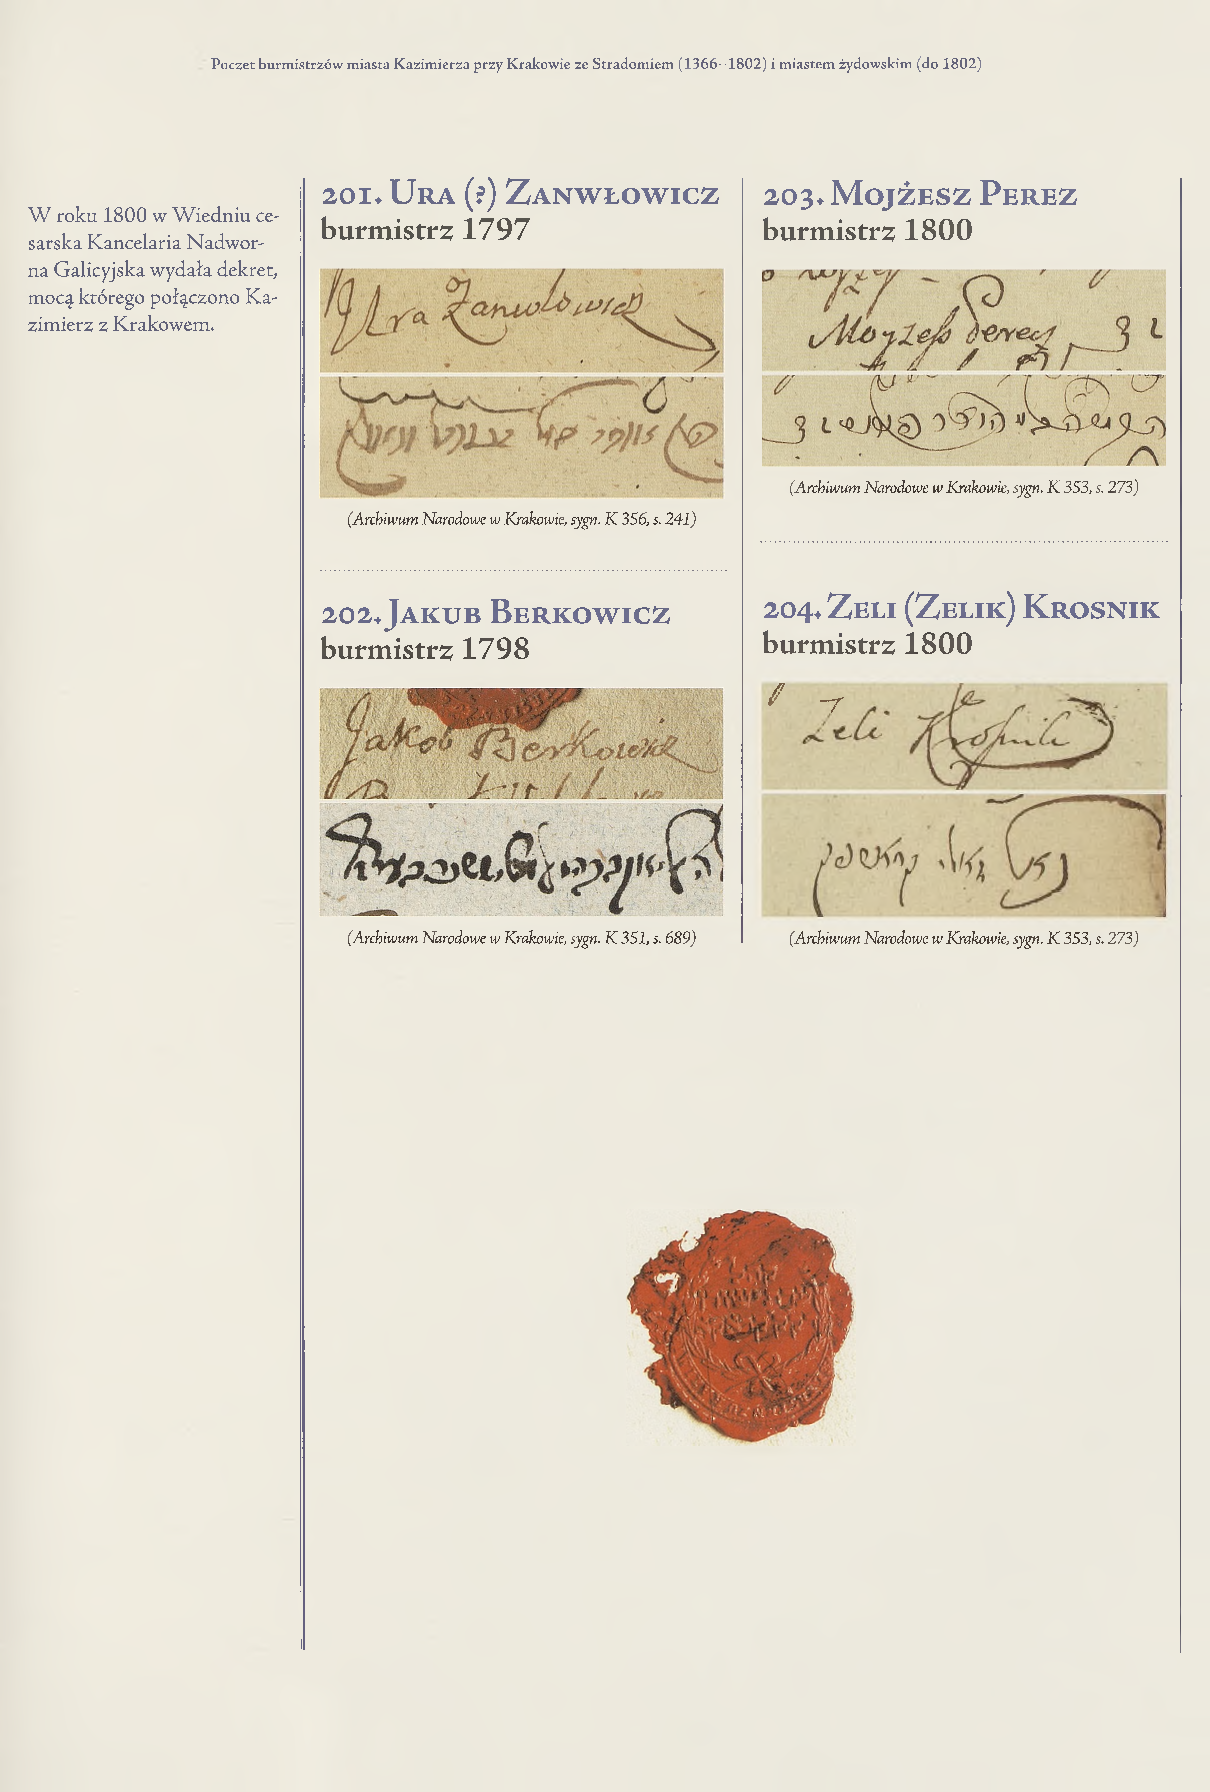 Poczet burmistrzów miasta Kazimierza przy Krakowie ze Stradomiem (1366–1802) i miastem żydowskim (do 1802)
W roku 1800 w Wiedniu ce-
sarska Kancelaria Nadwor-
na Galicyjska wydała dekret,
mocą którego połączono Ka-
zimierz z Krakowem.
201. Ura (?) Zanwłowicz
burmistrz 1797
Ura Zanwlowicz
(Archiwum Narodowe w Krakowie, sygn. K 356, s. 241)
202. Jakub Berkowicz
burmistrz 1798
Jakob Berkowicz
(Archiwum Narodowe w Krakowie, sygn. K 351, s. 689)
203. Mojżesz Perez
burmistrz 1800
Moyzeſs Perez
(Archiwum Narodowe w Krakowie, sygn. K 353, s. 273)
204. Zeli (Zelik) Krosnik
burmistrz 1800
Zeli Kroſnik
(Archiwum Narodowe w Krakowie, sygn. K 353, s. 273)